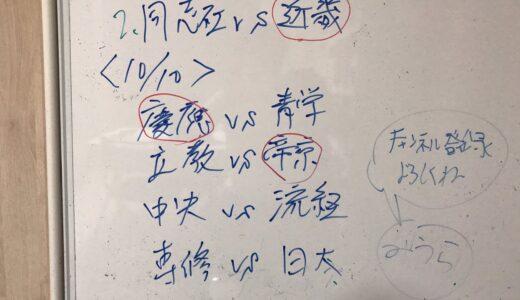 2.同志社 vs 近畿
<10/10>
慶應 vs 青学
立教 vs 帝京
中央 vs 流経
専修 vs 日大
チャンネル登録
よろしくね
みうら